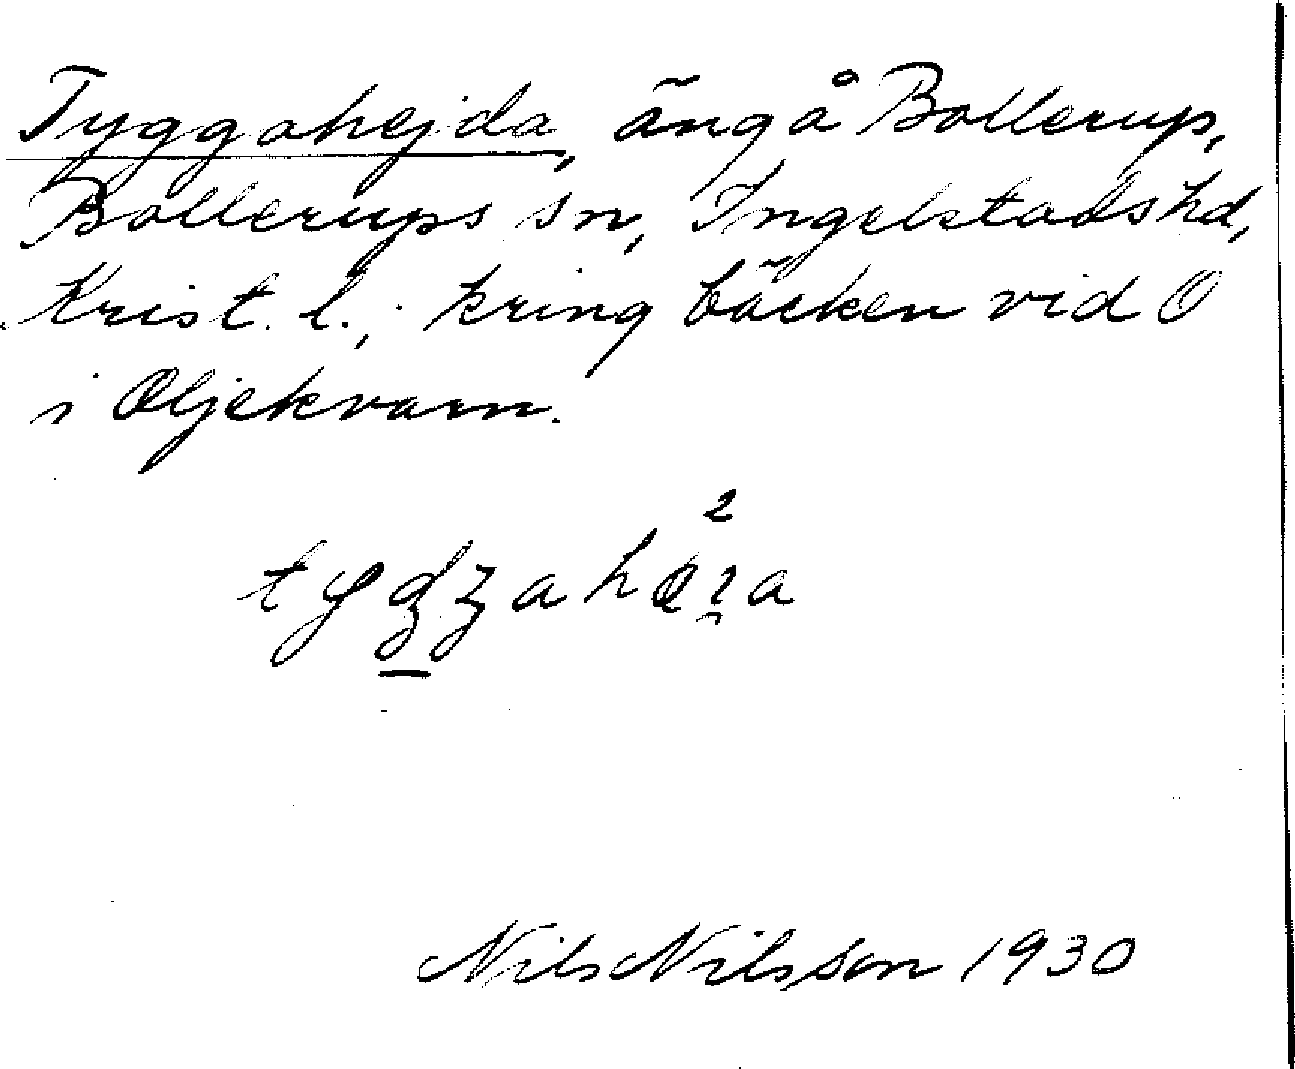 Tyggahejda, äng å Bollerup,
Bollerups sn, Ingelstads hd,
Krist. l.; kring bäcken vid O
i Oljekvarn.
Nils Nilsson 1930